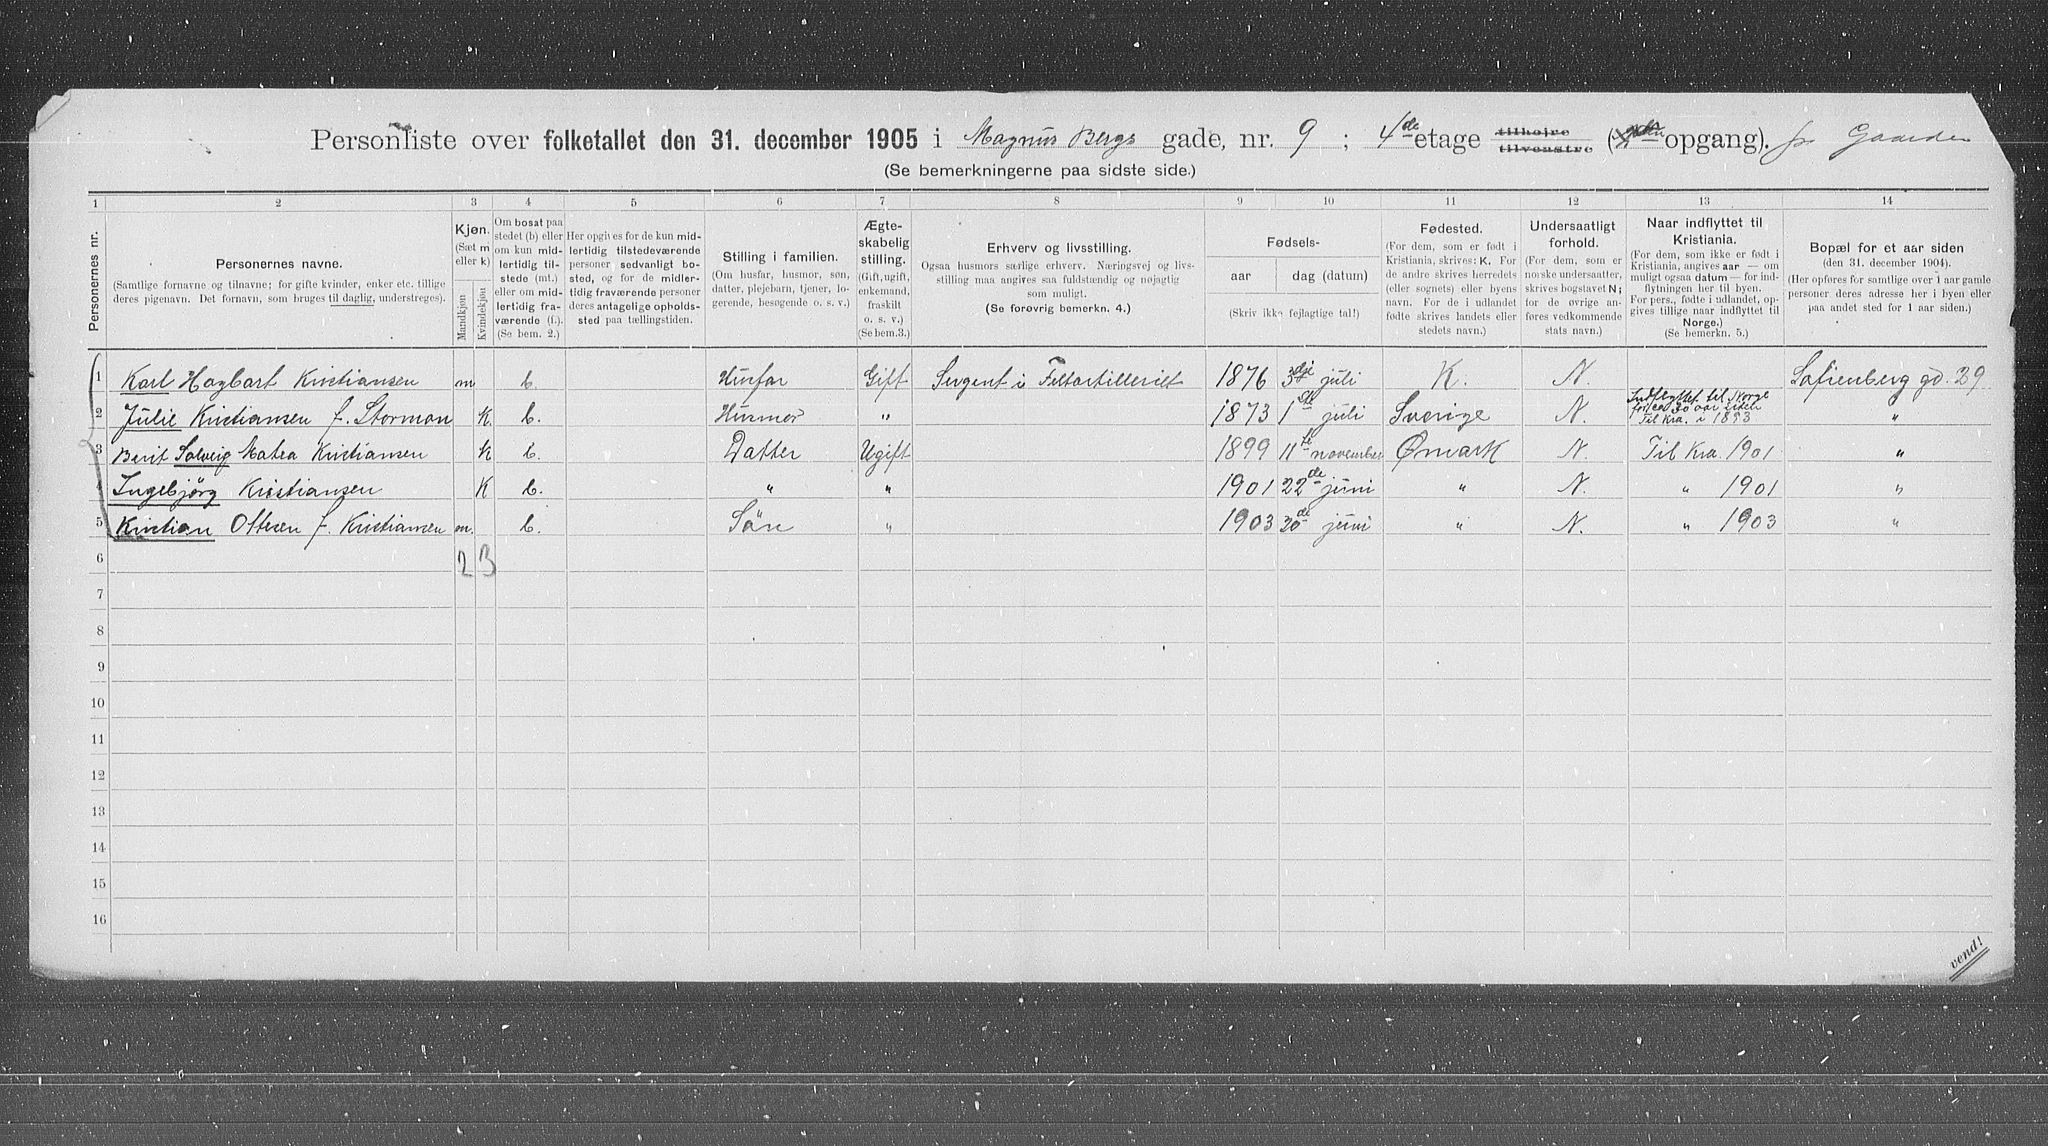 Personliste over folketallet den 31. december 1905 i Magnus Bergs gade, nr. 9 ; 4de etage tilhøjre tilvenstre ( opgang). Gaarden
(Se bemerkningerne paa sidste side.)
1 2 3 4 5 6 7 8 9 10 11 12 13 14
Personernes nr.
Personernes navne.
(Samtlige fornavne og tilnavne; for gifte kvinder, enker etc. tillige
deres pigenavn. Det fornavn, som bruges til daglig, understreges).
Kjøn.
(Sæt m
eller k)
Mandkjøn
Kvindekjøn
Om bosat paa
stedet (b) eller
om kun midlertidig tilstede (mt.)
eller om midlertidig fraværende (f.).
(Se bem. 2.)
Her opgives for de kun midlertidig tilstedeværende
personer sedvanligt bosted, og for de midlertidig fraværende personer
deres antagelige opholdssted paa tællingstiden.
Stilling i familien.
(Om husfar, husmor, søn,
datter, plejebarn, tjener, logerende, besøgende o. s. v.)
Ægteskabelig
stilling.
(Gift, ugift,
enkemand,
fraskilt
o. s. v.)
(Se bem. 3.)
Erhverv og livsstilling.
Ogsaa husmors særlige erhverv. Næringsvej og livsstilling maa angives saa fuldstændig og nøjagtig
som muligt.
(Se forøvrig bemerkn. 4.)
Fødsels-
aar dag (datum)
(Skriv ikke fejlagtige tal!)
Fødested.
(For dem, som er født i
Kristiania, skrives: K. For
de andre skrives herredets
(eller sognets) eller byens
navn. For de i udlandet
fødte skrives landets eller
stedets navn.)
Undersaatligt
forhold.
(For dem, som er
norske undersaatter,
skrives bogstavet N;
for de øvrige anføres vedkommende
stats navn.)
Naar indflyttet til
Kristiania.
(For dem, som ikke er født i
Kristiania, angives aar — om
muligt ogsaa datum — for indflytningen her til byen.
For pers., fødte i udlandet, opgives tillige naar indflyttet til
Norge.)
(Se bemerkn. 5.)
Bopæl for et aar siden
(den 31. december 1904).
(Her opføres for samtlige over 1 aar gamle
personer deres adresse her i byen eller
paa andet sted for 1 aar siden.)
1 Karl Hagbart Kristiansen m b. Husfar Gift Sergent i Feltartilleriet 1876 3dje juli K. N. Sofienberg gd. 29
2 Julie Kristiansen f. Storman K. b. Husmor " 1873 1ste juli Sverige N. Indflyttet til Norge for ca 30 aar siden Til Kra. i 1893 "
3 Berit Solveig Matea Kristiansen K b. Datter Ugift 1899 11te november Ømark N. Til Kra. 1901 "
4 Ingebjørg Kristiansen K b. " " 1901 22de juni " N. " 1901 "
5 Kristian Ottesen f. Kristiansen m. b. Søn " 1903 30de juni " N. " 1903 "
6 2 3
7
8
9
10
11
12
13
14
15
16
vend!